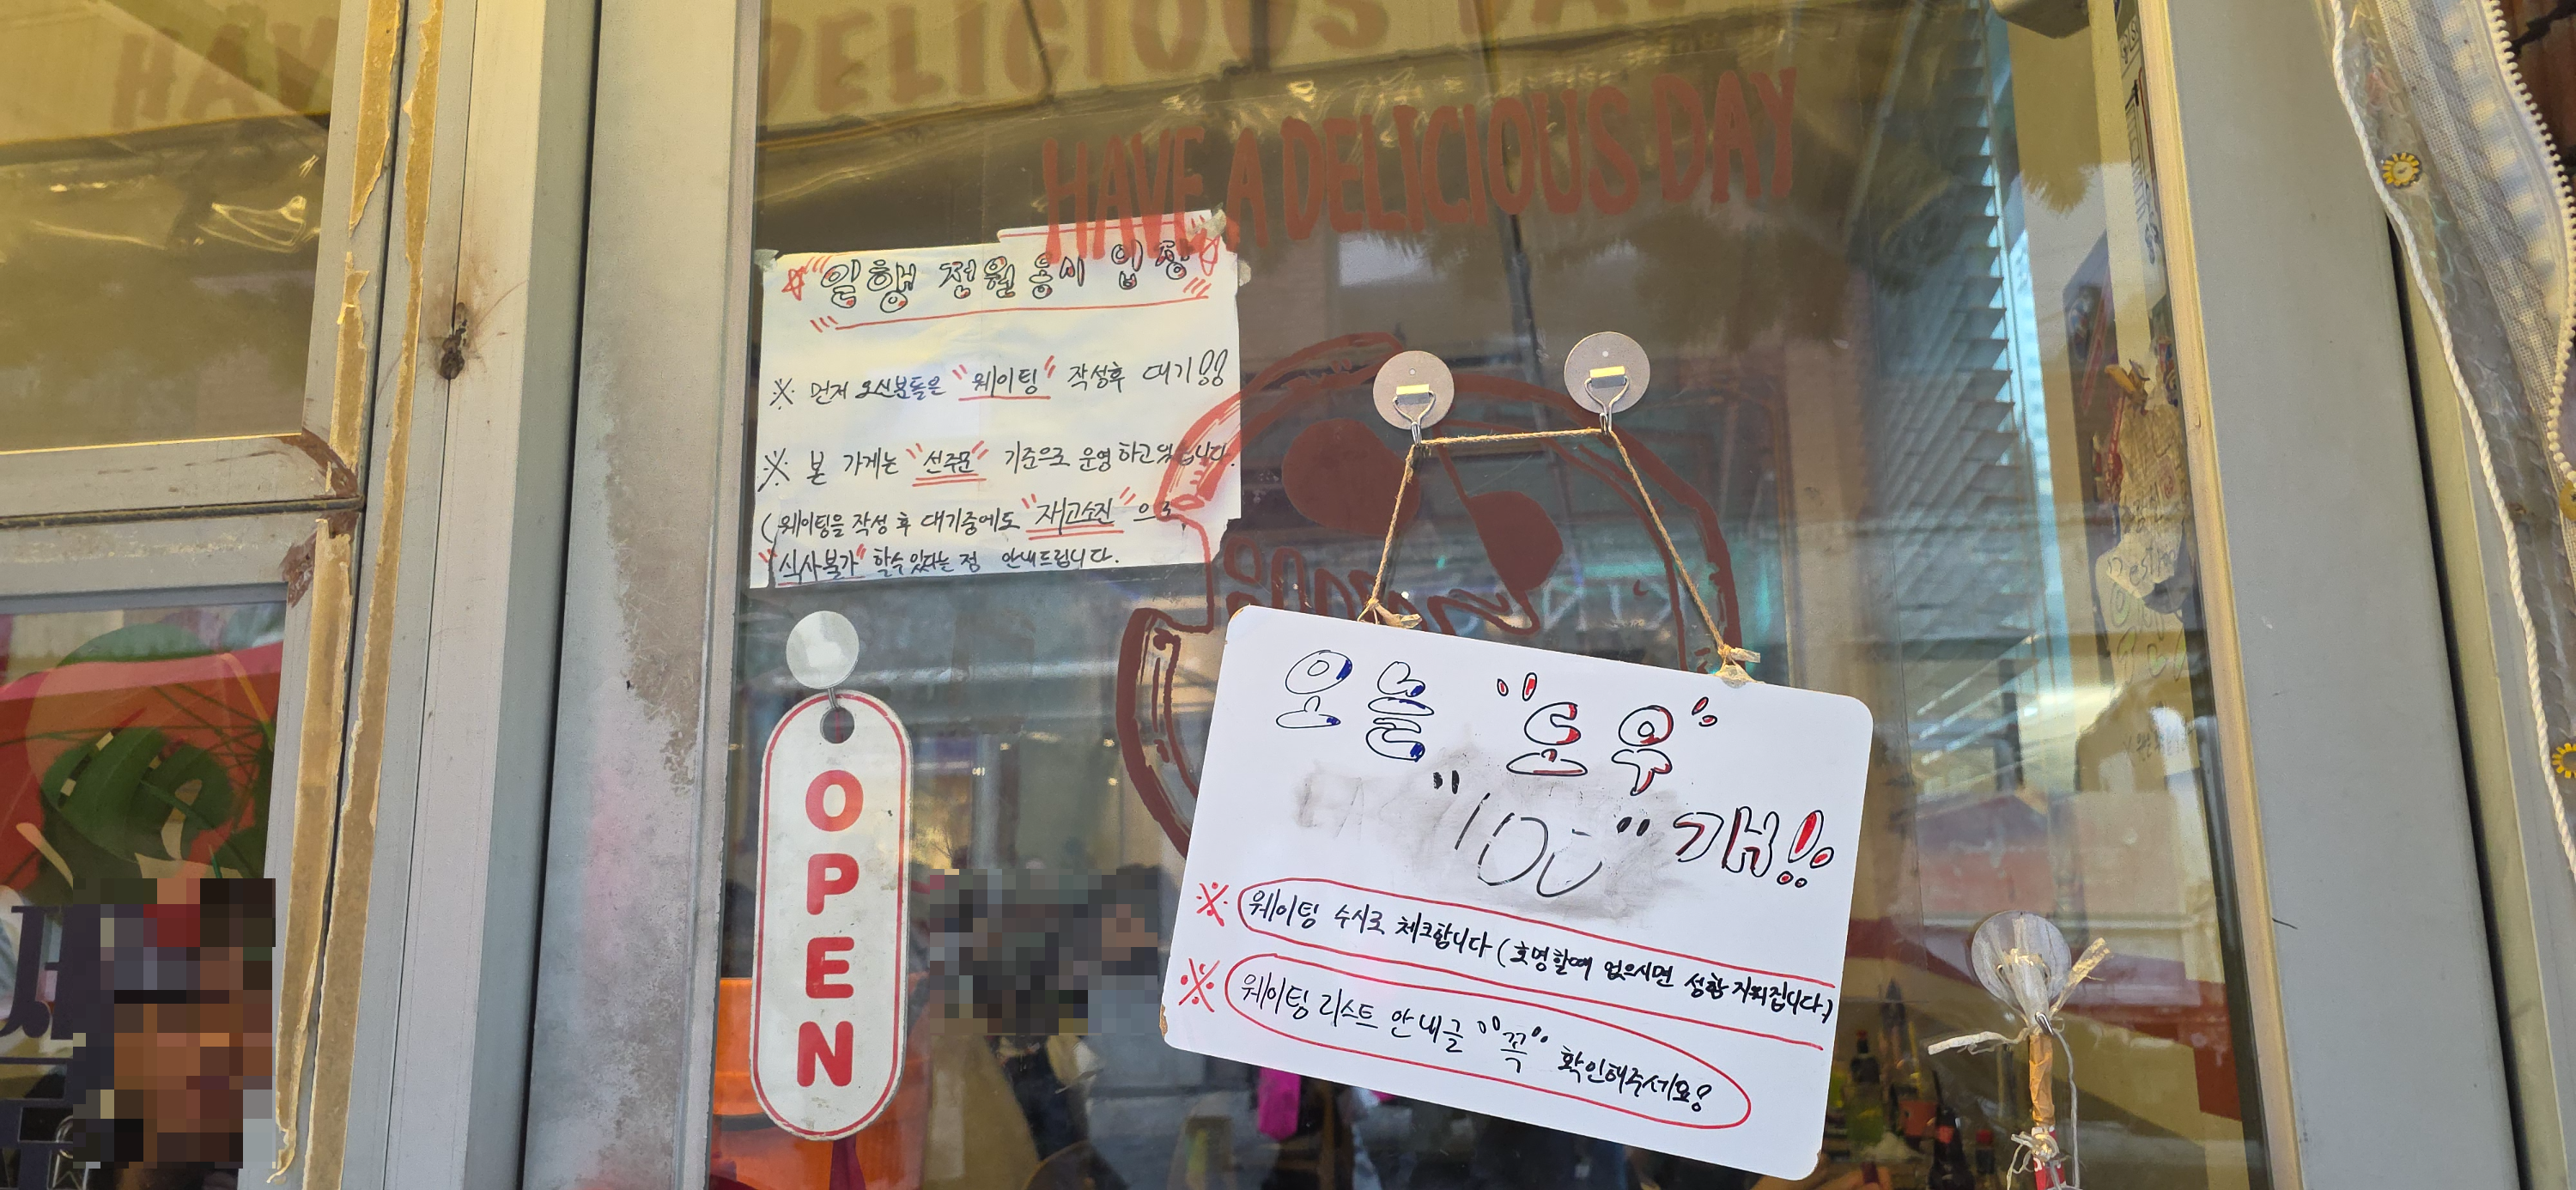 HAVE A DELICIOUS DAY
HAVE A DELICIOUS DAY
"일행 전원 동시 입장"
※ 먼저 오신분들은 "웨이팅" 작성후 대기!!
※ 본 가게는 "선주문" 기준으로 운영하고있습니다.
(웨이팅을 작성 후 대기중에도 "재고소진"으로
"식사불가" 할수있다는 점 안내드립니다.
OPEN
오늘 "도우"
"100" 개!!
※ 웨이팅 수시로 체크합니다 (호명할때 없으시면 성함 지워집니다.)
※ 웨이팅 리스트 안내글 "꼭" 확인해주세요!